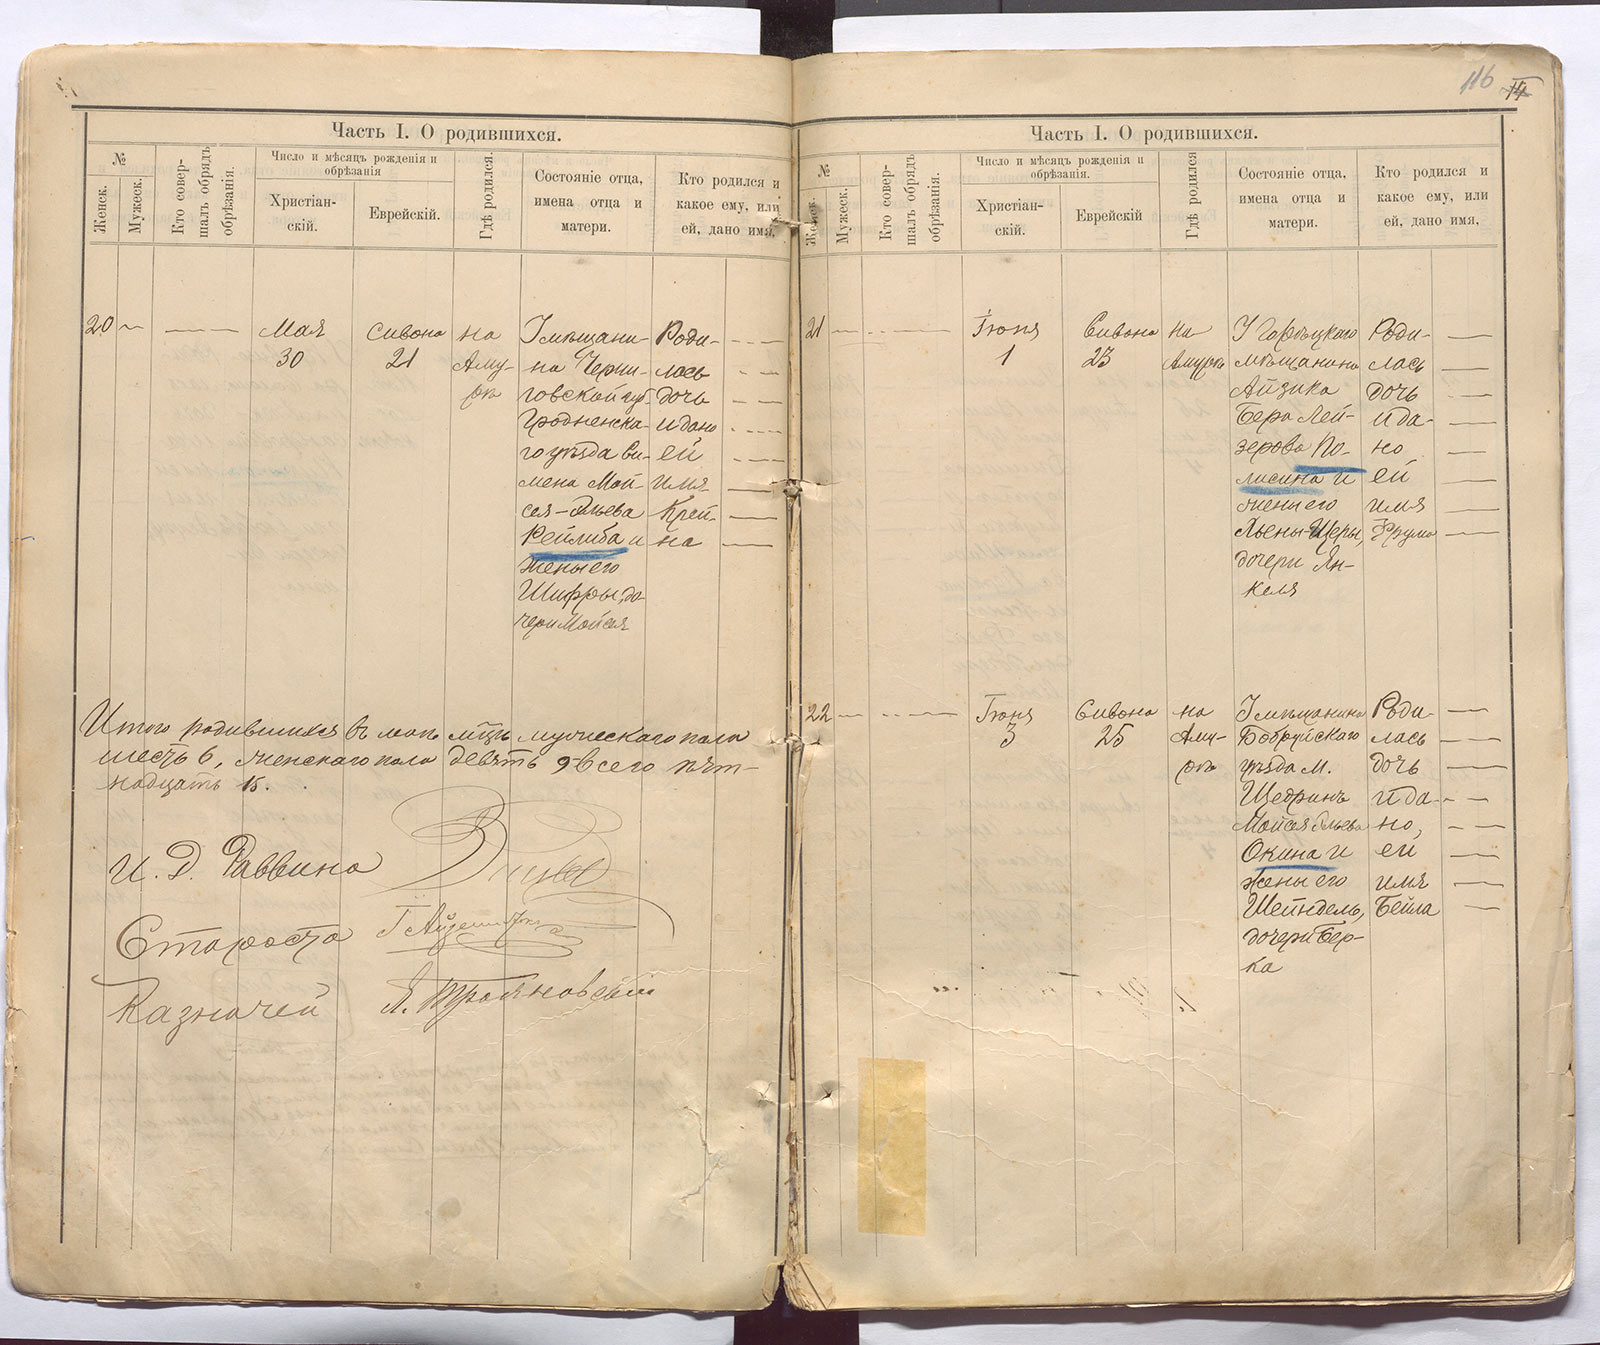 116 14
Часть I. О родившихся.
№
Женск.
Мужеск.
Кто совер-
шалъ обрядъ
обрѣзанія.
Число и мѣсяцъ рожденія и
обрѣзанія
Христіан-
скій.
Еврейскій.
Гдѣ родился.
Состояніе отца,
имена отца и
матери.
Кто родился и
какое ему, или
ей, дано имя,
20
Мая
30
Сивона
21
на
Аму-
рѣ
У мѣщани-
на Черни-
говской губ.
Гродненска-
го уѣзда Си-
мена Мой-
сея-
Рейлиба и
жены его
Шифры, до-
чери Мойсея
Роди-
лась
дочь
и дано
ей
имя
Крей-
на
Итого родившихся въ маѣ мѣцѣ мужескаго пола
шесть 6, женскаго пола девять 9 всего пят-
надцать 15.
И. Д. Раввина
Староста
Казначей
Я. Трояновскій
Часть I. О родившихся.
№
Женск.
Мужеск.
Кто совер-
шалъ обрядъ
обрѣзанія.
Число и мѣсяцъ рожденія и
обрѣзанія.
Христіан-
скій.
Еврейскій
Гдѣ родился
Состояніе отца,
имена отца и
матери.
Кто родился и
какое ему, или
ей, дано имя,
21
Іюня
1
Сивона
23
на
Амурѣ
У
мѣщанина
Айзика
Бера Лей-
зерова По-
лисина и
жены его
Хьены-Церы,
дочери Ян-
келя
Роди-
лась
дочь
и да-
но
ей
имя
Фрума
22
Іюня
3
Сивона
25
на
Аму-
рѣ
У мѣщанина
Бобруйскаго
уѣзда М.
Щедринъ
Мойсея
Окина и
жены его
Шейндель,
дочери Бер-
ка
Роди-
лась
дочь
и да-
но,
ей
имя
Бейла